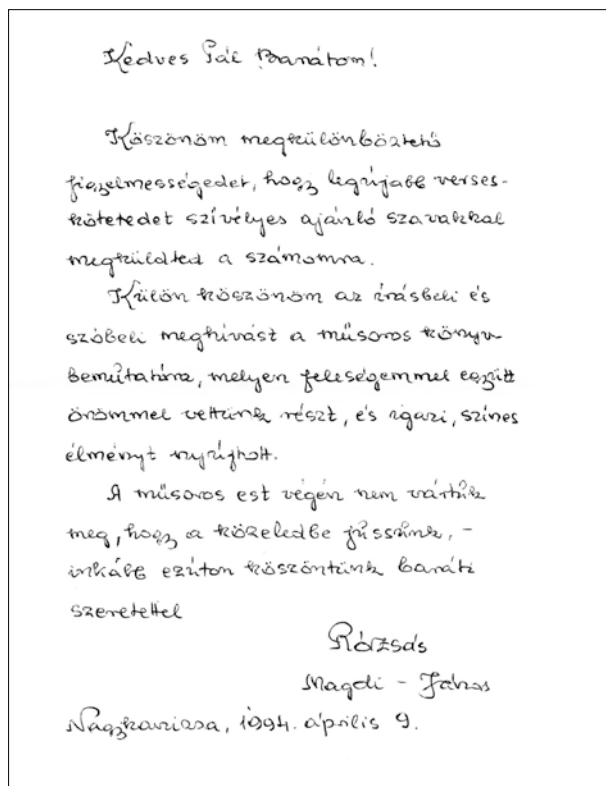 Kedves Pál Barátom!
Köszönöm megkülönböztető
figyelmességedet, hogy legújabb verses-
kötetedet szívélyes ajánló szavakkal
megküldted a számomra.
Külön köszönöm az írásbeli és
szóbeli meghívást a műsoros könyv-
bemutatóra, melyen feleségemmel együtt
örömmel vettünk részt, és igazi, színes
élményt nyújtott.
A műsoros est végén nem vártuk
meg, hogy a közeledbe jussunk, -
inkább ezúton köszöntünk baráti
szeretettel
Rózsás
Magdi - János
Nagykanizsa, 1994. április 9.